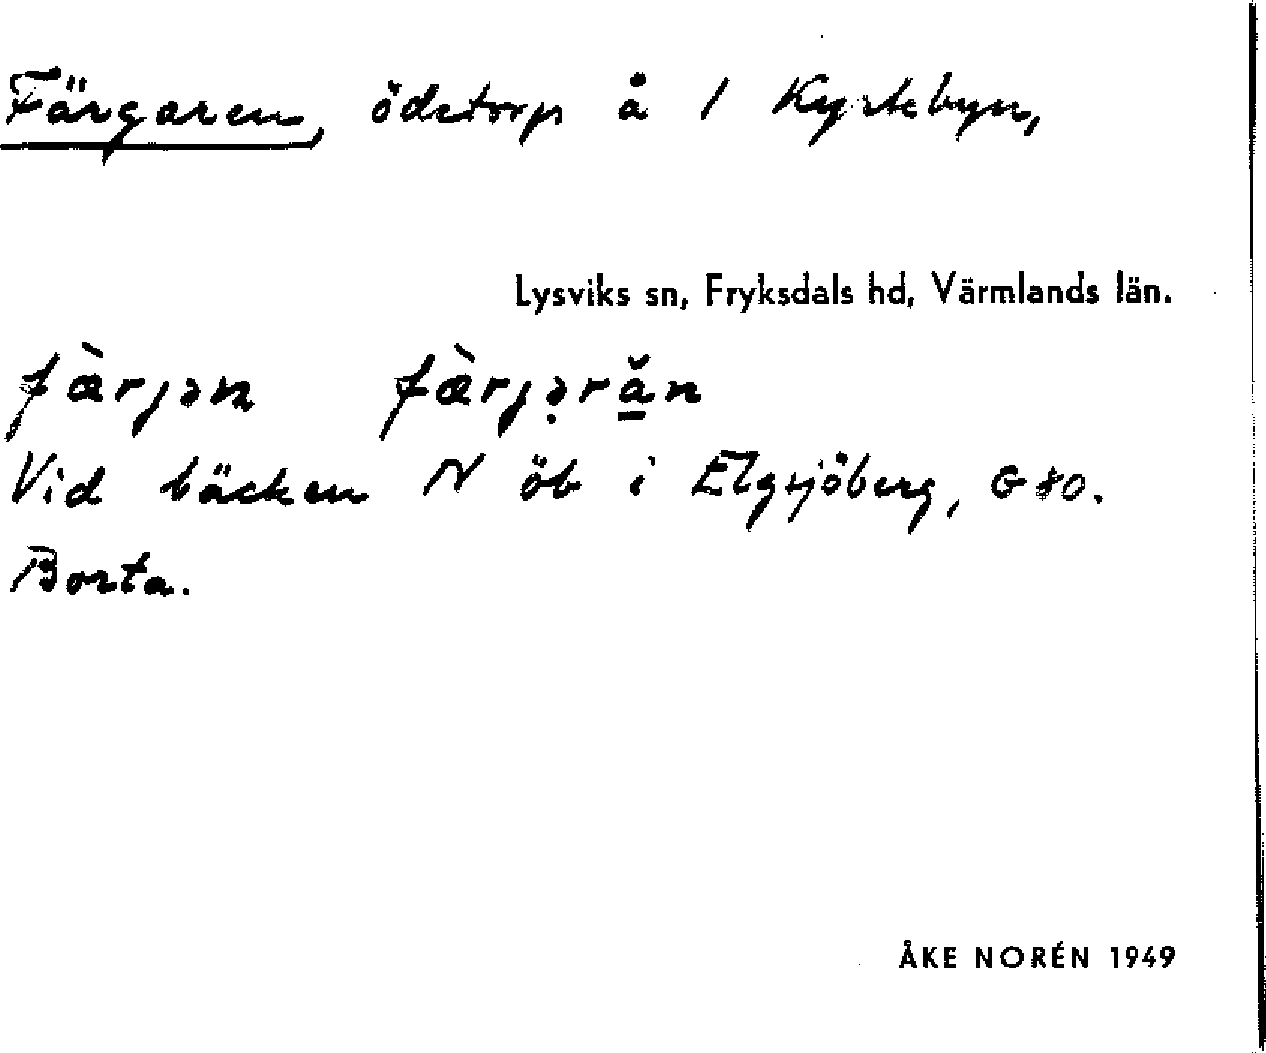 Färgaren, ödetorp å 1 Kyrkebyn,
Lysviks sn, Fryksdals hd, Värmlands län.
fæ̀rjən fæ̀rjə̣rä̆n
Vid bäcken N öb i Elgsjöberg, G80.
Borta.
ÅKE NORÉN 1949